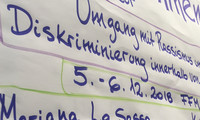 Umgang mit Rassismus u
Diskriminierung innerhalb von
5.-6.12.2018 FFM
Mariana La